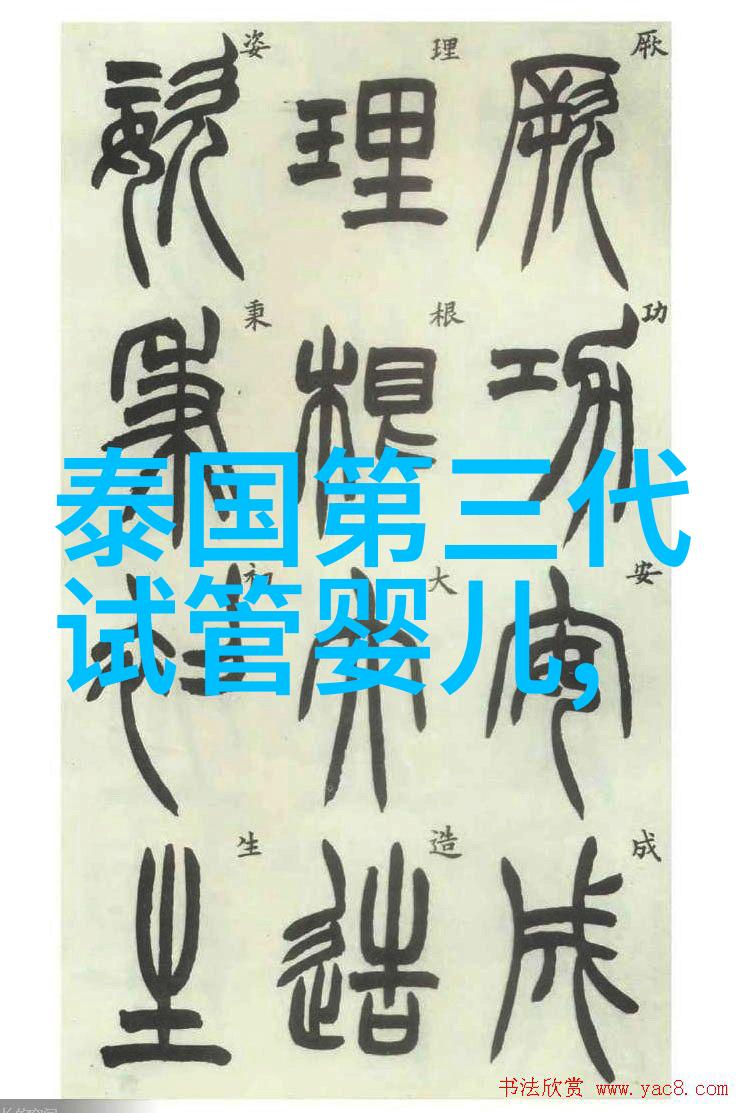 厥 功 安 成
理 根 大 造
姿 秉 初 生
泰国第三代
试管婴儿,
书法欣赏 www.yac8.com